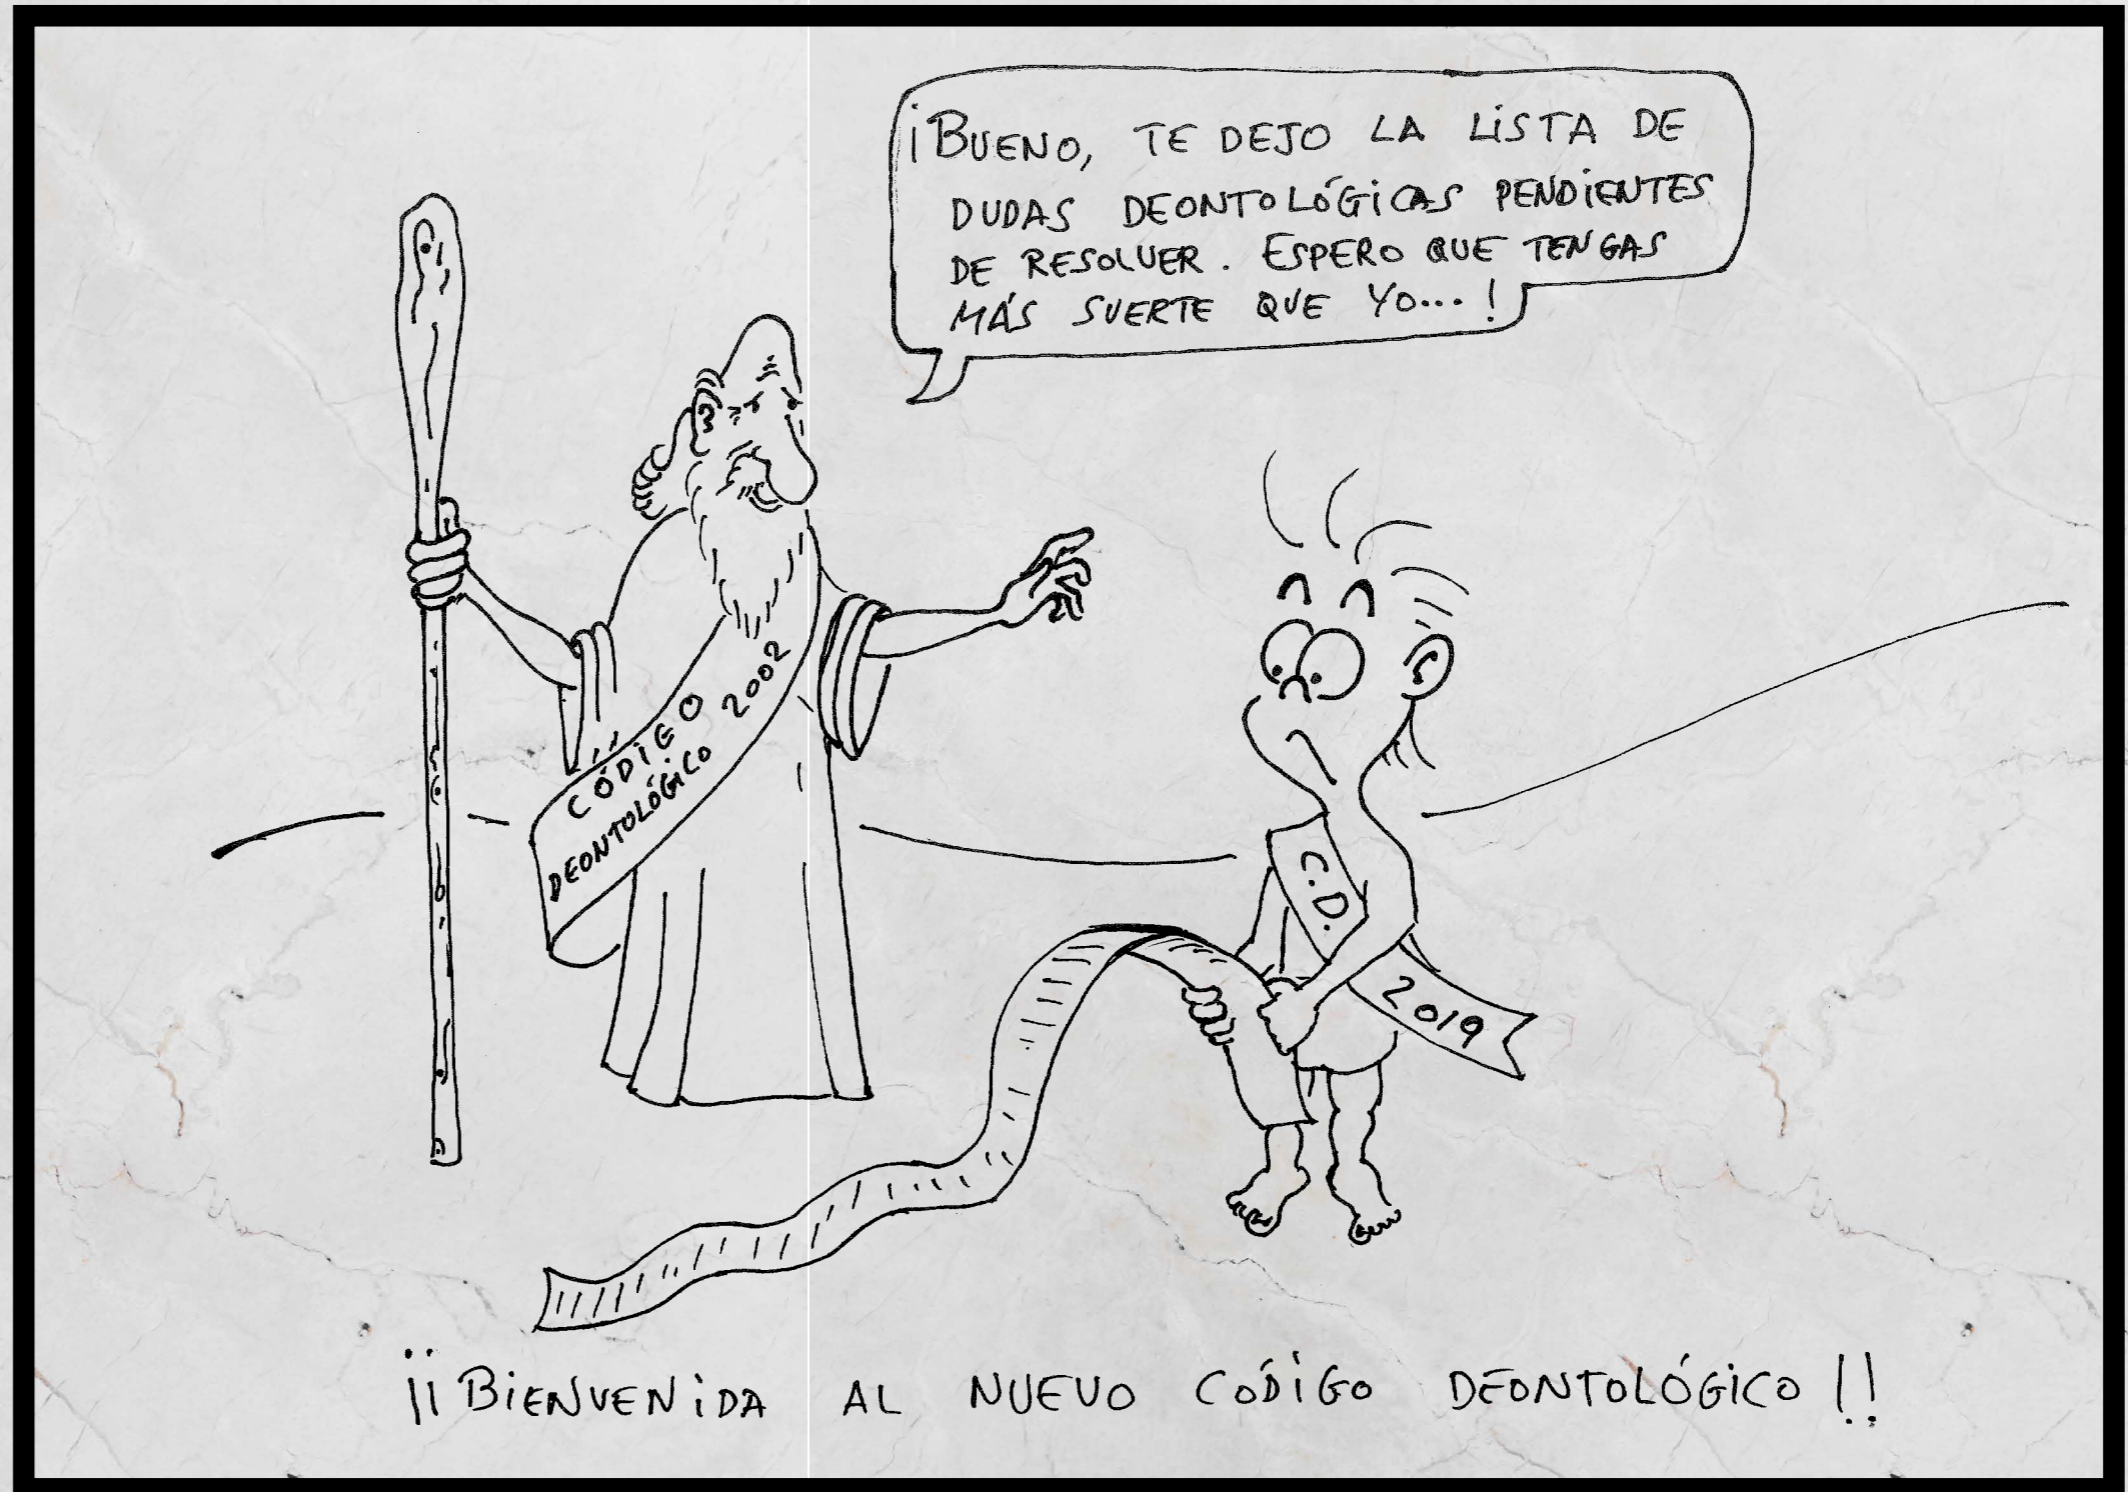 ¡BUENO, TE DEJO LA LISTA DE
DUDAS DEONTOLÓGICAS PENDIENTES
DE RESOLVER. ESPERO QUE TENGAS
MÁS SUERTE QUE YO...!
CÓDIGO
DEONTOLÓGICO 2002
C.D.
2019
¡¡BIENVENIDA AL NUEVO CÓDIGO DEONTOLÓGICO!!